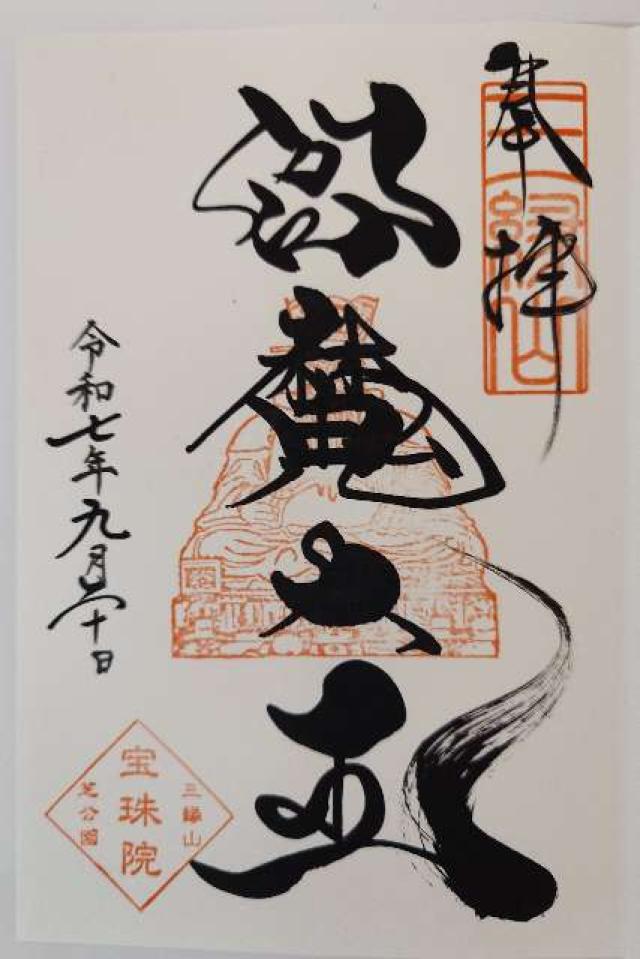 奉拝
三縁山
閻魔大王
令和七年九月二十日
三縁山
宝珠院
芝公園